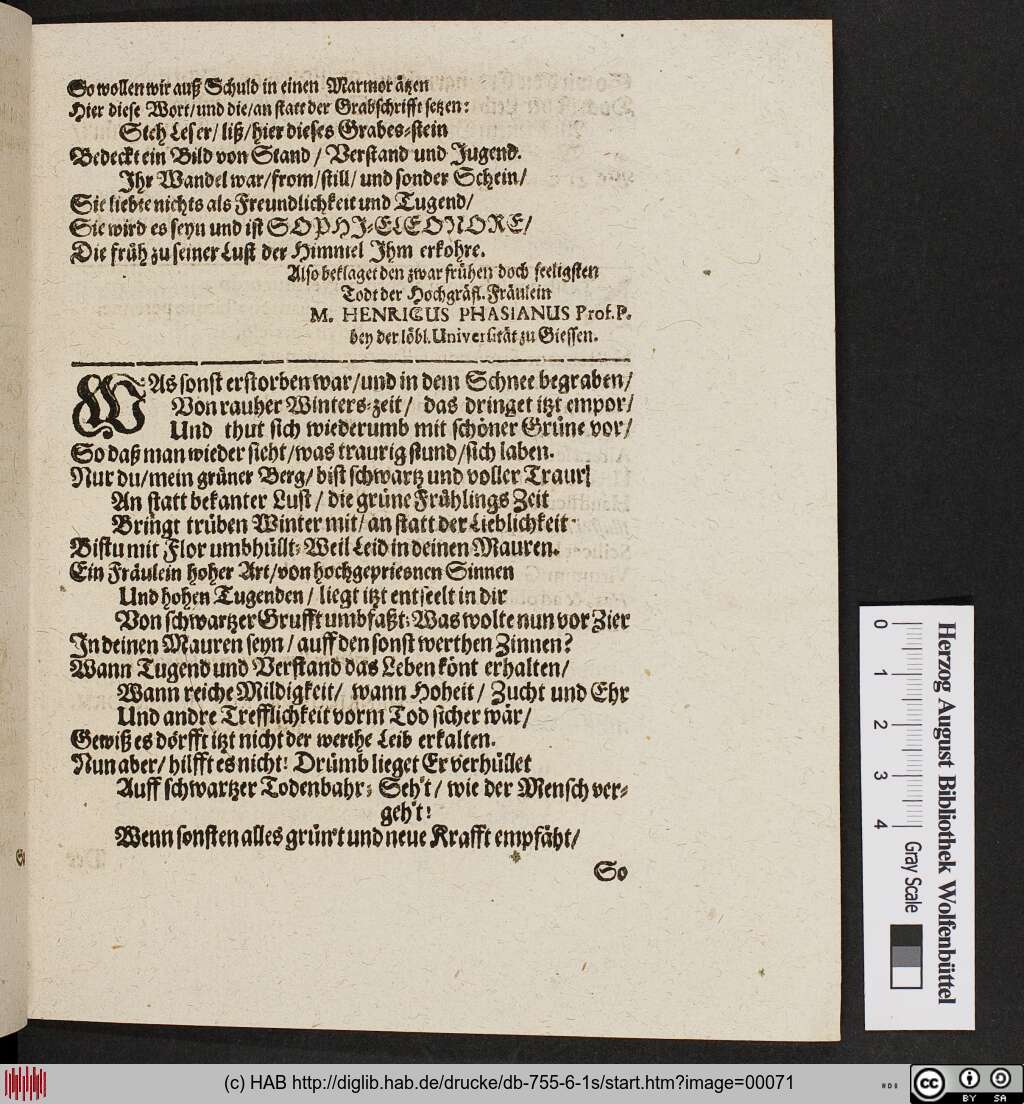 So wollen wir auß Schuld in einen Marmor ätzen
Hier diese Wort/und die/an statt der Grabschrifft setzen:
Steh Leser/ liß/hier dieses Grabes=stein
Bedeckt ein Bild von Stand / Verstand und Jugend.
Ihr Wandel war/from/still/ und sonder Schein/
Sie liebte nichts als Freundlichkeit und Tugend/
Sie wird es seyn und ist SOPHI=ELEONORE/
Die früh zu seiner Lust der Himmel Ihm erkohre.
Also beklaget den zwar frühen doch seeligsten
Todt der Hochgräfl. Fräulein
M. HENRICUS PHASIANUS Prof. P.
bey der löbl. Universität zu Giessen.
WAs sonst erstorben war/und in dem Schnee begraben/
Von rauher Winters=zeit/ das dringet itzt empor/
Und thut sich wiederumb mit schöner Grüne vor/
So daß man wieder sieht/was traurig stund/sich laben.
Nur du/mein grüner Berg/ bist schwartz und voller Traur!
An statt bekanter Lust / die grüne Frühlings Zeit
Bringt trüben Winter mit/ an statt der Lieblichkeit
Bistu mit Flor umbhüllt: Weil Leid in deinen Mauren.
Ein Fräulein hoher Art/von hochgepriesnen Sinnen
Und hohen Tugenden / liegt itzt entseelt in dir
Von schwartzer Grufft umbfaßt: Was wolte nun vor Zier
In deinen Mauren seyn/ auff den sonst werthen Zinnen?
Wann Tugend und Verstand das Leben könt erhalten/
Wann reiche Mildigkeit/ wann Hoheit / Zucht und Ehr
Und andre Trefflichkeit vorm Tod sicher wär/
Gewiß es dörfft itzt nicht der werthe Leib erkalten.
Nun aber/ hilfft es nicht! Drümb lieget Er verhüllet
Auff schwartzer Todenbahr: Seh't / wie der Mensch ver=
geh't!
Wenn sonsten alles grün't und neue Krafft empfäht/
So
Herzog August Bibliothek Wolfenbüttel
0 1 2 3 4 Gray Scale
(c) HAB http://diglib.hab.de/drucke/db-755-6-1s/start.htm?image=00071
cc BY SA